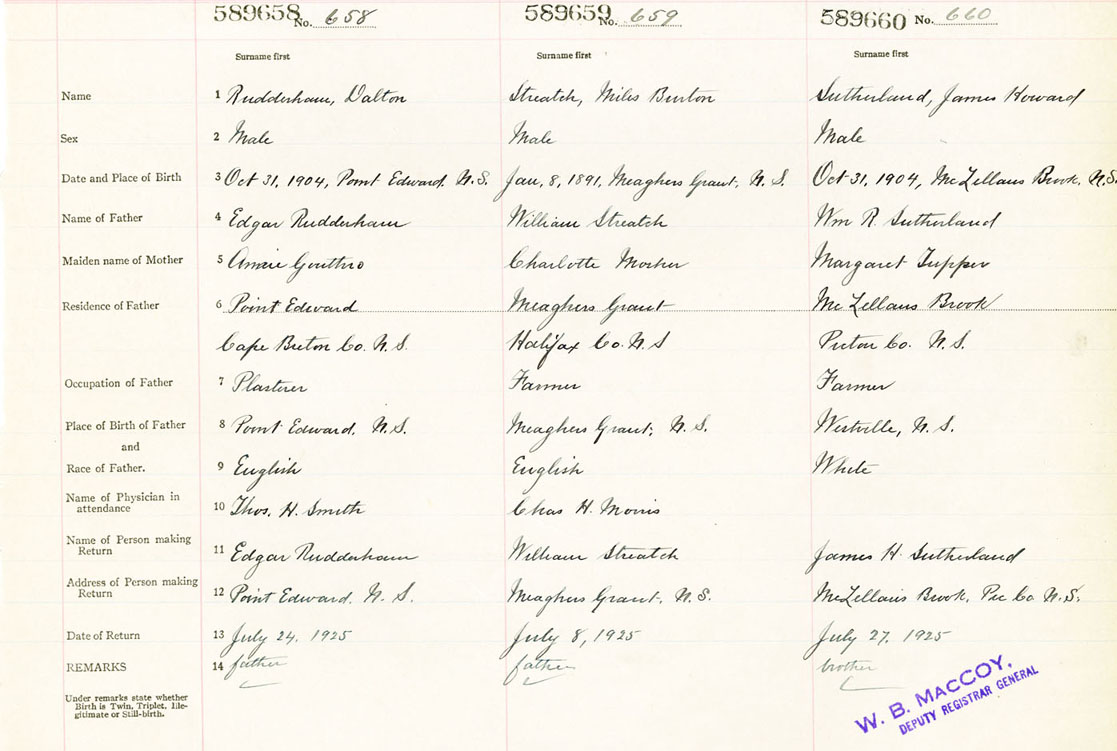 589658 No. 658 589659 No. 659 589660 No. 660
Surname first Surname first Surname first
Name 1 Rudderham, Dalton Streatch, Miles Burton Sutherland, James Howard
Sex 2 Male Male Male
Date and Place of Birth 3 Oct 31, 1904, Point Edward, N.S. Jan, 8, 1891, Meaghers Grant, N.S. Oct 31, 1904, McLellans Brook, N.S.
Name of Father 4 Edgar Rudderham William Streatch Wm R. Sutherland
Maiden name of Mother 5 Annie Gouthro Charlotte Mosher Margaret Tupper
Residence of Father 6 Point Edward Meaghers Grant McLellans Brook
Cape Breton Co. N.S. Halifax Co. N.S Pictou Co. N.S.
Occupation of Father 7 Plasterer Farmer Farmer
Place of Birth of Father 8 Point Edward, N.S. Meaghers Grant, N.S. Westville, N.S.
and
Race of Father. 9 English English White
Name of Physician in
attendance 10 Thos. H. Smith Chas H. Morris
Name of Person making
Return 11 Edgar Rudderham William Streatch James H. Sutherland
Address of Person making
Return 12 Point Edward. N.S. Meaghers Grant, N.S. McLellans Brook, Pic Co N.S.
Date of Return 13 July 24, 1925 July 8, 1925 July 27, 1925
REMARKS 14 father father brother
Under remarks state whether
Birth is Twin, Triplet, Ille-
gitimate or Still-birth.
W. B. MACCOY,
DEPUTY REGISTRAR GENERAL